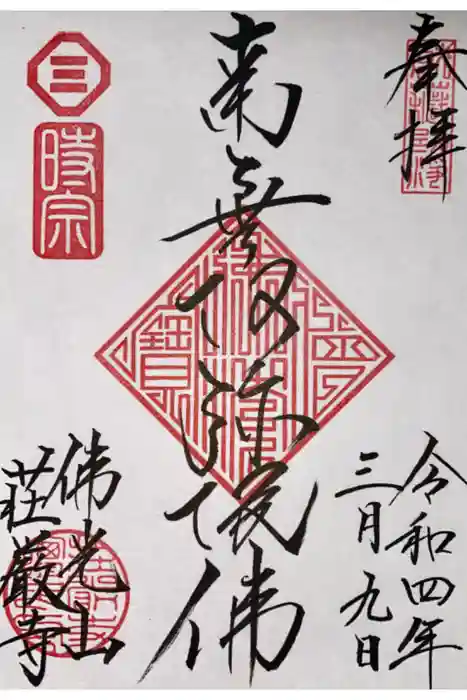 奉拝
令和四年
三月九日
南無阿弥陀佛
佛光山
荘厳寺
三
時宗